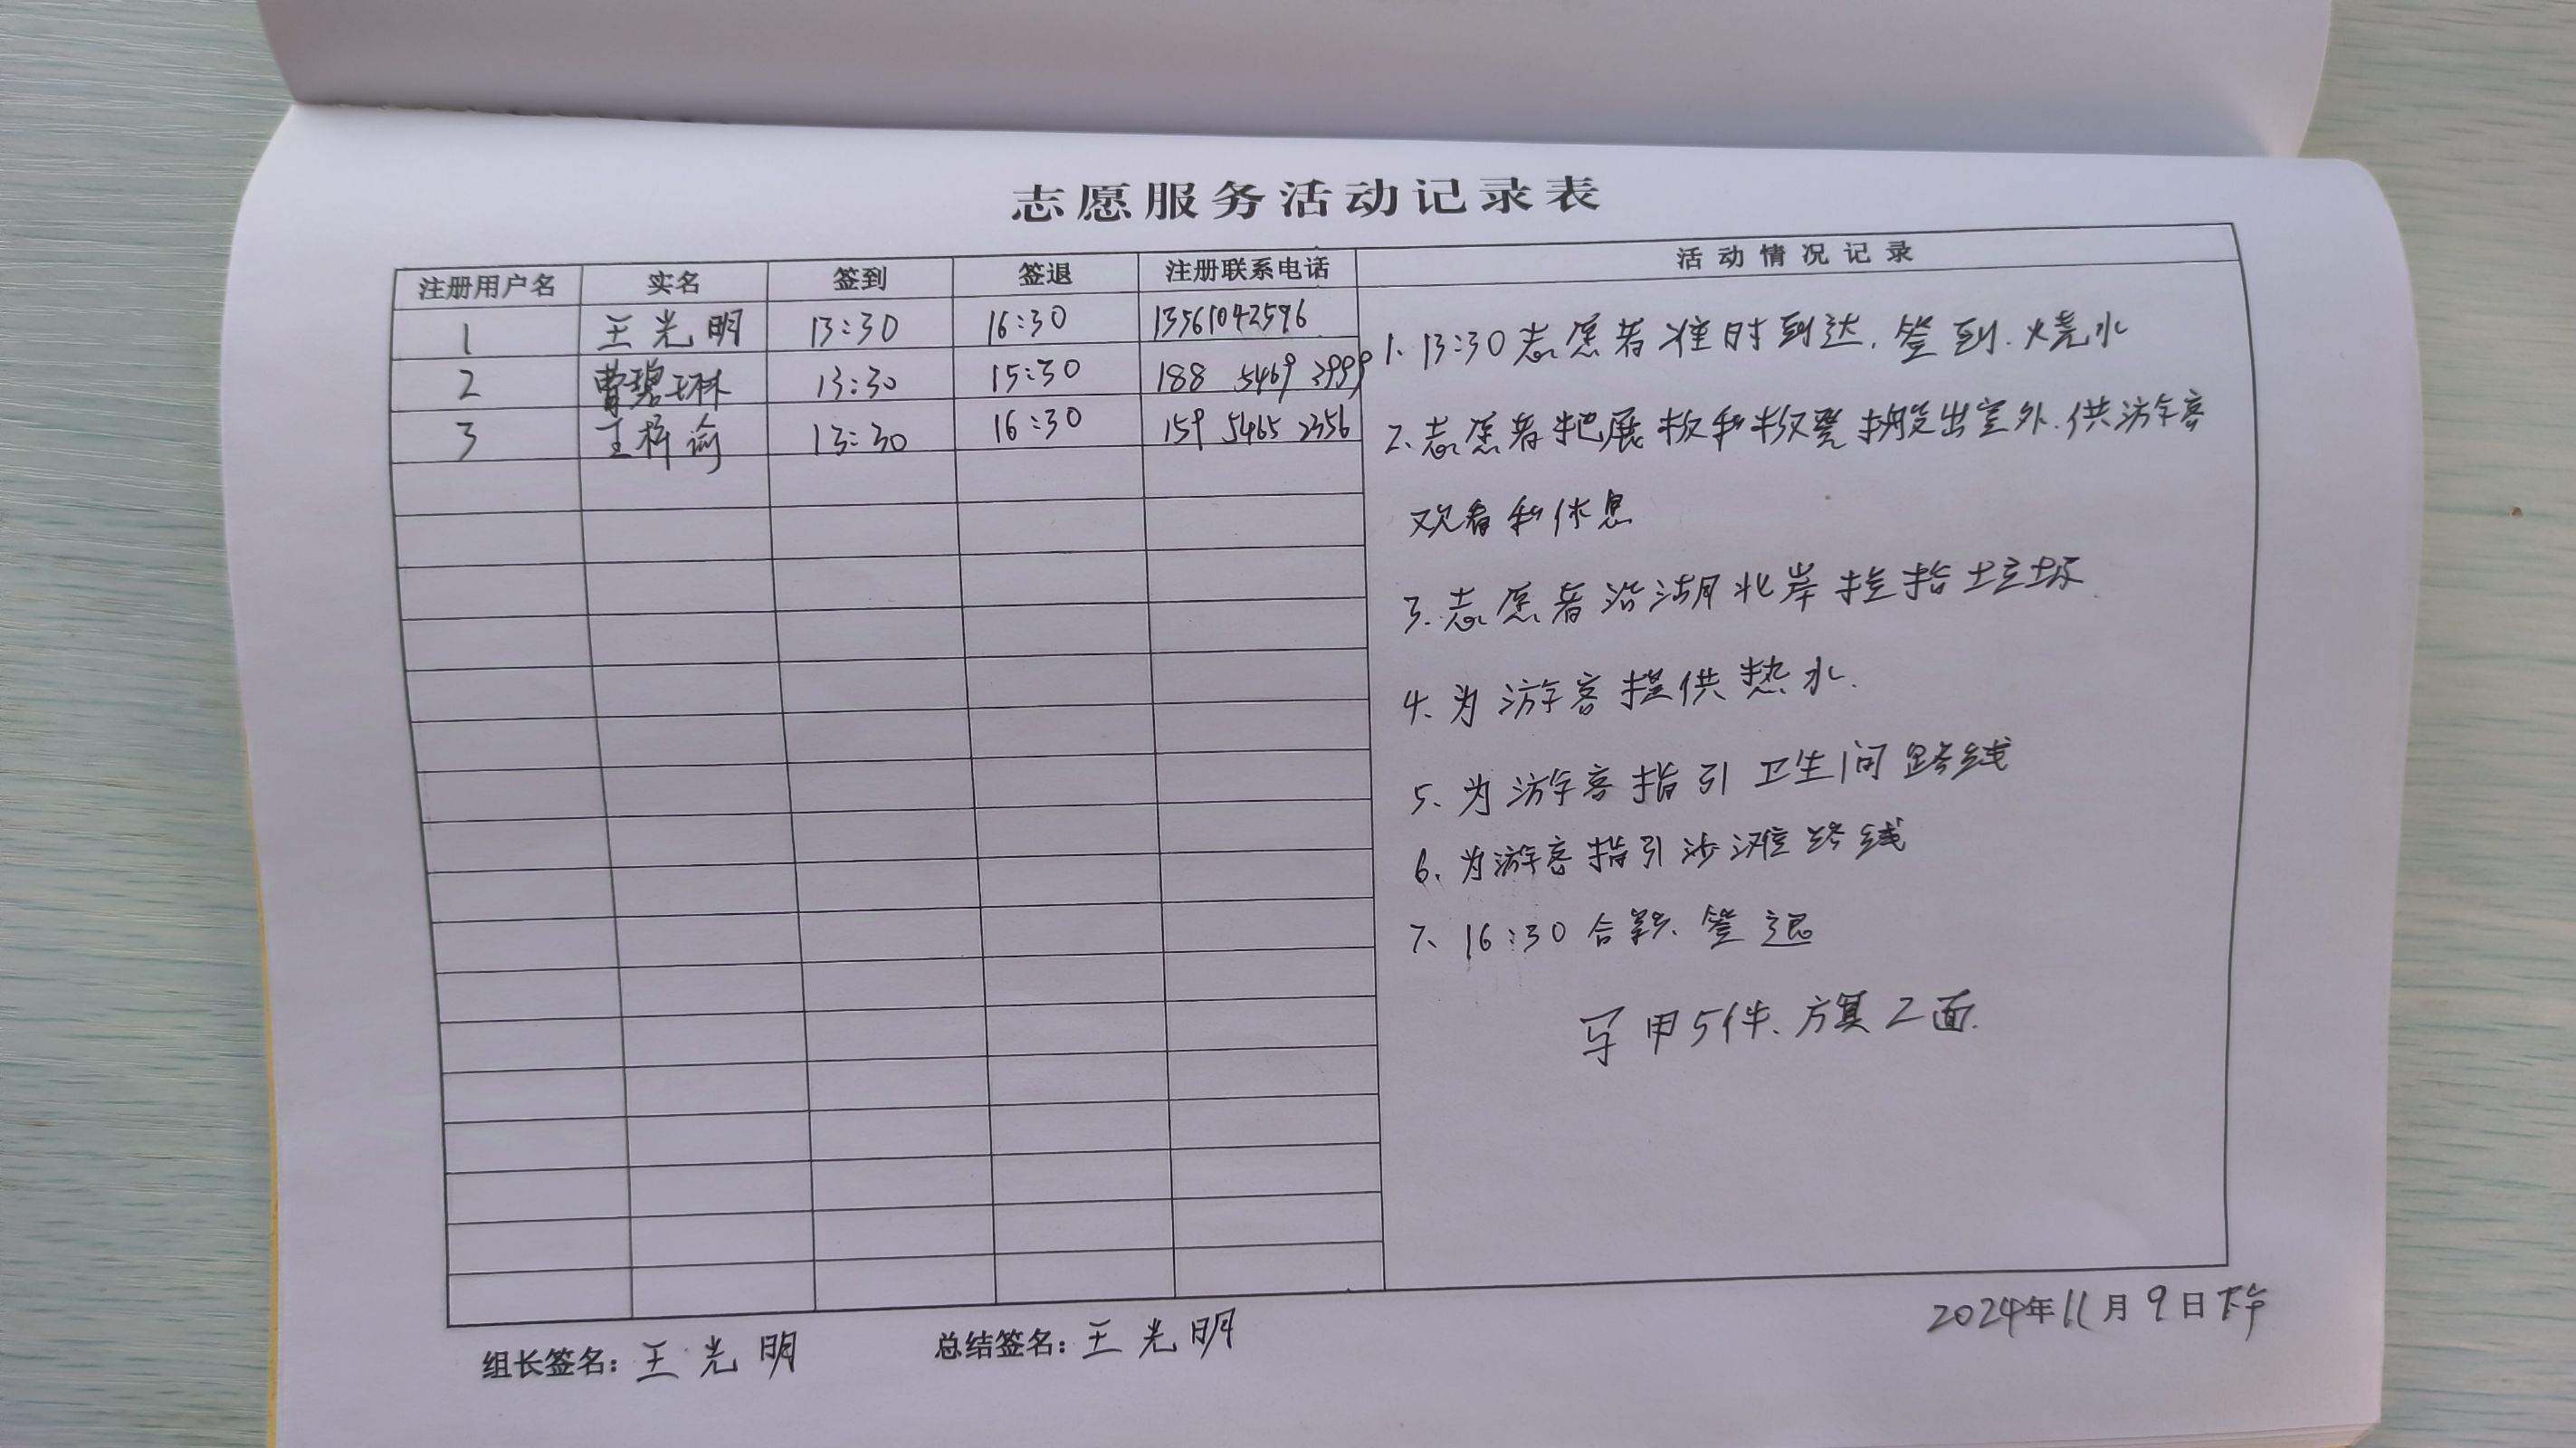 志愿服务活动记录表
注册用户名 实名 签到 签退 注册联系电话 活动情况记录
1 王光明 13:30 16:30 13561042596
2 曹碧琳 13:30 15:30 188 5469 3999
3 王梓谕 13:30 16:30 159 5465 2356
1、13:30志愿者准时到达、签到、烧水
2、志愿者把展板和板凳搬出室外、供游客
观看和休息
3、志愿者沿湖北岸捡拾垃圾
4、为游客提供热水、
5、为游客指引卫生间路线
6、为游客指引沙滩路线
7、16:30合影、签退
马甲5件、旗2面
组长签名：王光明 总结签名：王光明 2024年11月9日下午